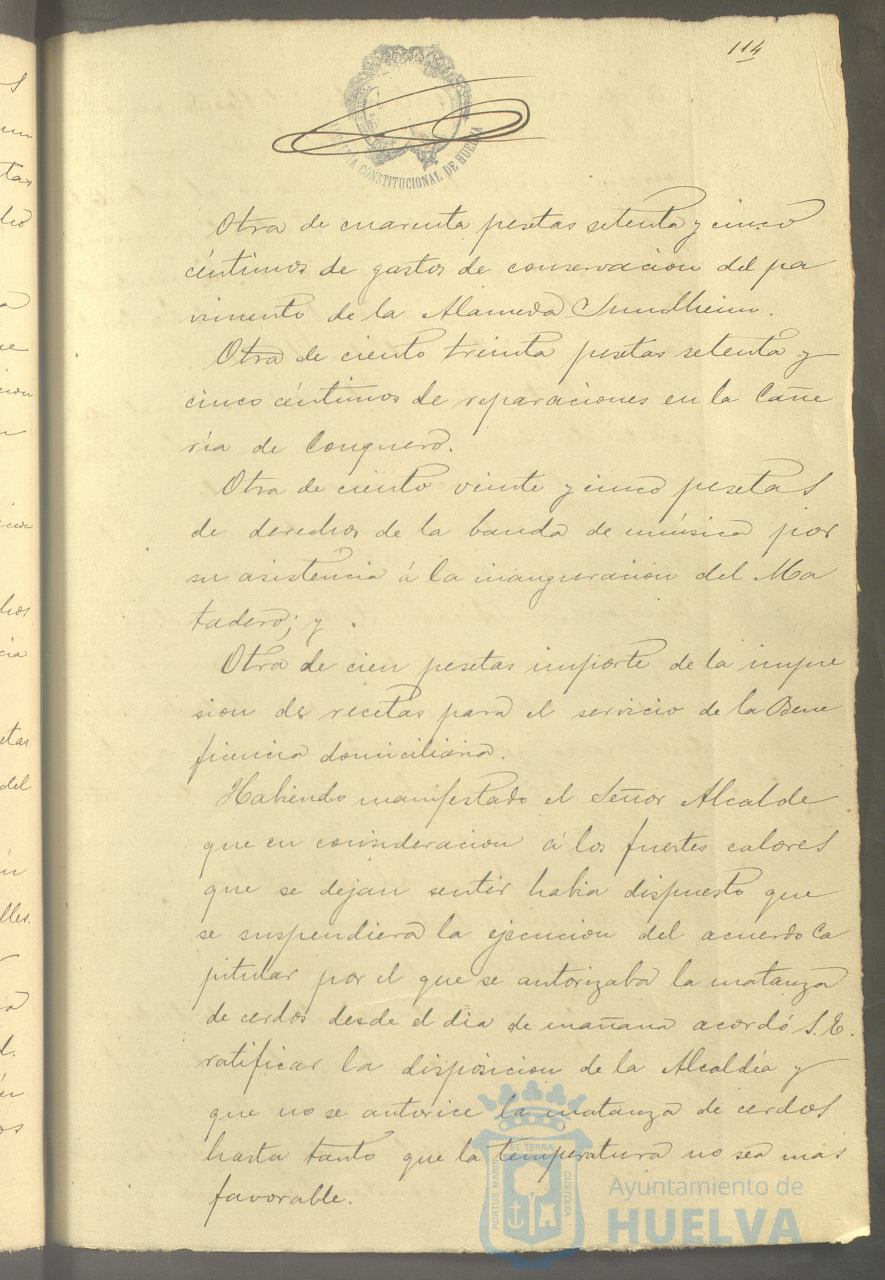 114
CONSTITUCIONAL DE HUELVA
Otra de cuarenta pesetas setenta y cinco
céntimos de gastos de conservacion del pa
vimento de la Alameda Sundheim.
Otra de ciento treinta pesetas setenta y
cinco céntimos de reparaciones en la Cañe
ría de Conquero.
Otra de ciento veinte y cinco pesetas
de derechos de la banda de música por
su asistencia á la inauguracion del Ma
tadero; y
Otra de cien pesetas importe de la impre
sion de recetas para el servicio de la Bene
ficencia domiciliaria.
Habiendo manifestado el Señor Alcalde
que en consideracion á los fuertes calores
que se dejan sentir habia dispuesto que
se suspendiera la ejecucion del acuerdo Ca
pitular por el que se autorizaba la matanza
de cerdos desde el dia de mañana acordó S.E.
ratificar la disposicion de la Alcaldía y
que no se autorice la matanza de cerdos
hasta tanto que la temperatura no sea mas
favorable.
PORTUS MARIS ET TERRAE CUSTODIA
Ayuntamiento de
HUELVA